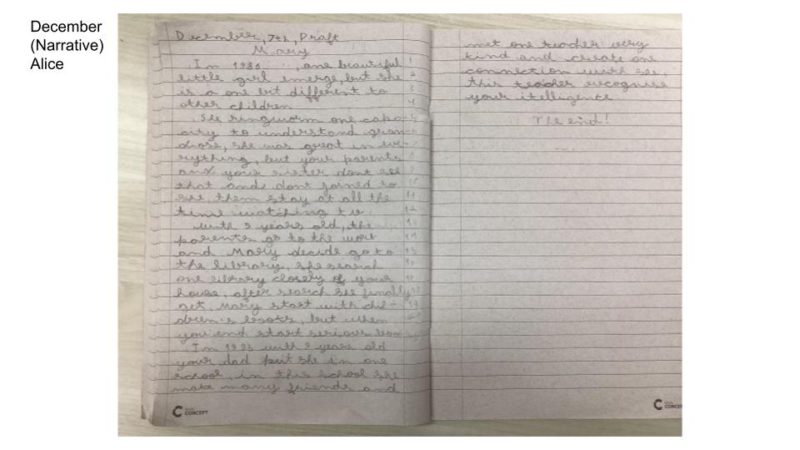 December
(Narrative)
Alice
December, 7th, Draft
Mary
In 1986, one beautiful
little girl emerge, but she
is a one bit different to
other children
She ringworm one capa-
city to understand gran-
diose, she was great in eve-
rything, but your parents
and your sister dont see
that and dont joined to
set, them stay at all the
time watching tv.
with 5 years old, the
parentes go to the work
and Mary decide go to
the library, she search
one library closery of your
house, after search she finally
get, Mary start with chil-
dren's books, but when
you end start serious
In 1993 with 9 years old
your dad put she in one
school, in this school she
make many friends and
met one teacher very
kind and create one
connection with she,
this teacher recognise
your itelligence
The end!
CONCEPT